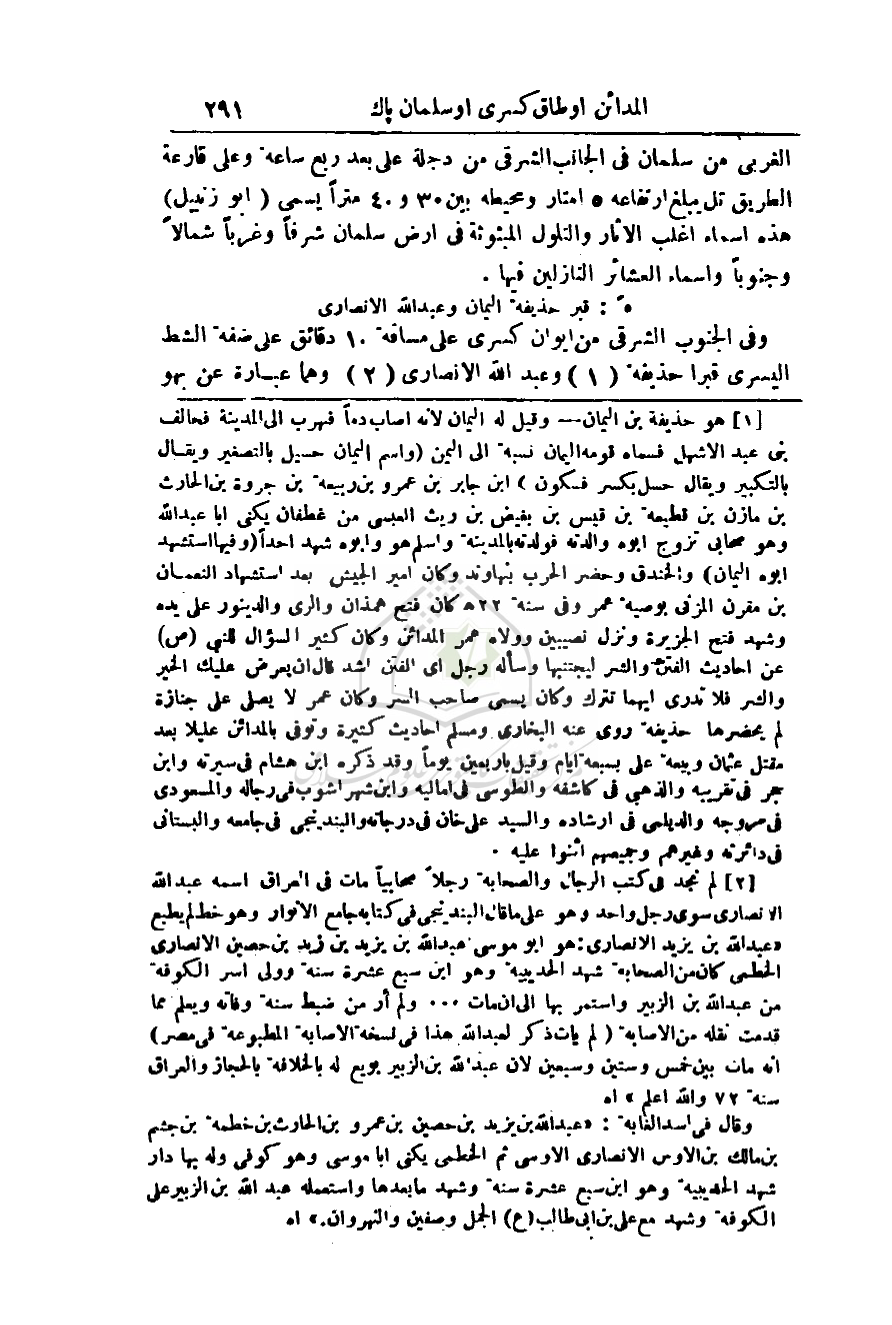 المدائن او طاق كسرى او سلمان پاك ٢٩١
الغربى من سلمان فى الجانب الشرقى من دجلة على بعد ربع ساعة وعلى قارعة
الطريق تل يبلغ ارتفاعه ٥ امتار ومحيطه بين ٣٠ و ٤٠ متراً يسمى ( ابو زنبيل )
هذه اسماء اغلب الآثار والتلول المبثوثة فى ارض سلمان شرقاً وغرباً شمالاً
وجنوباً واسماء العشائر النازلين فيها .
٥ً : قبر حذيفة اليمان وعبدالله الانصارى
وفى الجنوب الشرقى من ايوان كسرى على مسافة ١٠ دقائق على ضفة الشط
اليسرى قبرا حذيفة ( ١ ) وعبد الله الانصارى ( ٢ ) وهما عبارة عن بهو
[١] هو حذيفة بن اليمان — وقيل له اليمان لانه اصاب دماً فهرب الى المدينة فحالف
بنى عبد الاشهل فسماه قومه اليمان نسبة الى اليمن (واسم اليمان حسيل بالتصغير ويقال
بالتكبير ويقال حسل بكسر فسكون ) ابن جابر بن عمرو بن ربيعة بن جروة بن الحارث
بن مازن بن قطيعة بن قيس بن بغيض بن ريث العبسى من غطفان يكنى ابا عبدالله
وهو صحابى تزوج ابوه والدته فولدته بالمدينة واسلم هو وابوه شهد احداً (وفيها استشهد
ابوه اليمان) والخندق وحضر الحرب بنهاوند وكان امير الجيش بعد استشهاد النعمان
بن مقرن المزنى بوصية عمر وفى سنة ٢٢ه كان فتح همذان والرى والدينور على يده
وشهد فتح الجزيرة ونزل نصيبين وولاه عمر المدائن وكان كثير السؤال للنبي (ص)
عن احاديث الفتن والشر ليجتنبها وسأله رجل اى الفتن اشد قال ان يعرض عليك الخير
والشر فلا تدرى ايهما تترك وكان يسمى صاحب السر وكان عمر لا يصلى على جنازة
لم يحضرها حذيفة روى عنه البخارى ومسلم احاديث كثيرة وتوفى بالمدائن عليلا بعد
مقتل عثمان وبيعة على بسبعة ايام وقيل باربعين يوماً وقد ذكره ابن هشام فى سيرته وابن
حجر فى تقريبه والذهبى فى كاشفه والطوسى فى اماليه وابن شهر اشوب فى رجاله والمسعودى
فى مروجه والديلمى فى ارشاده والسيد على خان فى درجاته والبندنيجى فى جامعه والبستانى
فى دائرته وغيرهم وجميعهم اثنوا عليه .
[٢] لم نجد فى كتب الرجال والصحابة رجلاً صحابياً مات فى العراق اسمه عبدالله
الانصارى سوى رجل واحد وهو على ما قال البندنيجى فى كتابه جامع الانوار وهو خط لم يطبع
«عبدالله بن يزيد الانصارى : هو ابو موسى عبدالله بن يزيد بن زيد بن حصين الانصارى
الخطمى كان من الصحابة شهد الحديبية وهو ابن سبع عشرة سنة وولى امر الكوفة
من عبدالله بن الزبير واستمر بها الى ان مات ٠٠٠ ولم أر من ضبط سنة وفاته ويعلم مما
قدمت نقله من الاصابة ( لم يأت ذكر لعبدالله هذا فى نسخة الاصابة المطبوعة فى مصر )
انه مات بين خمس وستين وسبعين لان عبدالله بن الزبير بويع له بالخلافة بالحجاز والعراق
سنة ٧٢ والله اعلم » اه
وقال فى اسد الغابة : «عبدالله بن يزيد بن حصين بن عمرو بن الحارث بن خطمة بن جشم
بن مالك بن الاوس الانصارى الاوسى ثم الخطمى يكنى ابا موسى وهو كوفى وله بها دار
شهد الحديبية وهو ابن سبع عشرة سنة وشهد مابعدها واستعمله عبد الله بن الزبير على
الكوفة وشهد مع على بن ابى طالب (ع) الجمل وصفين والنهروان.» اه